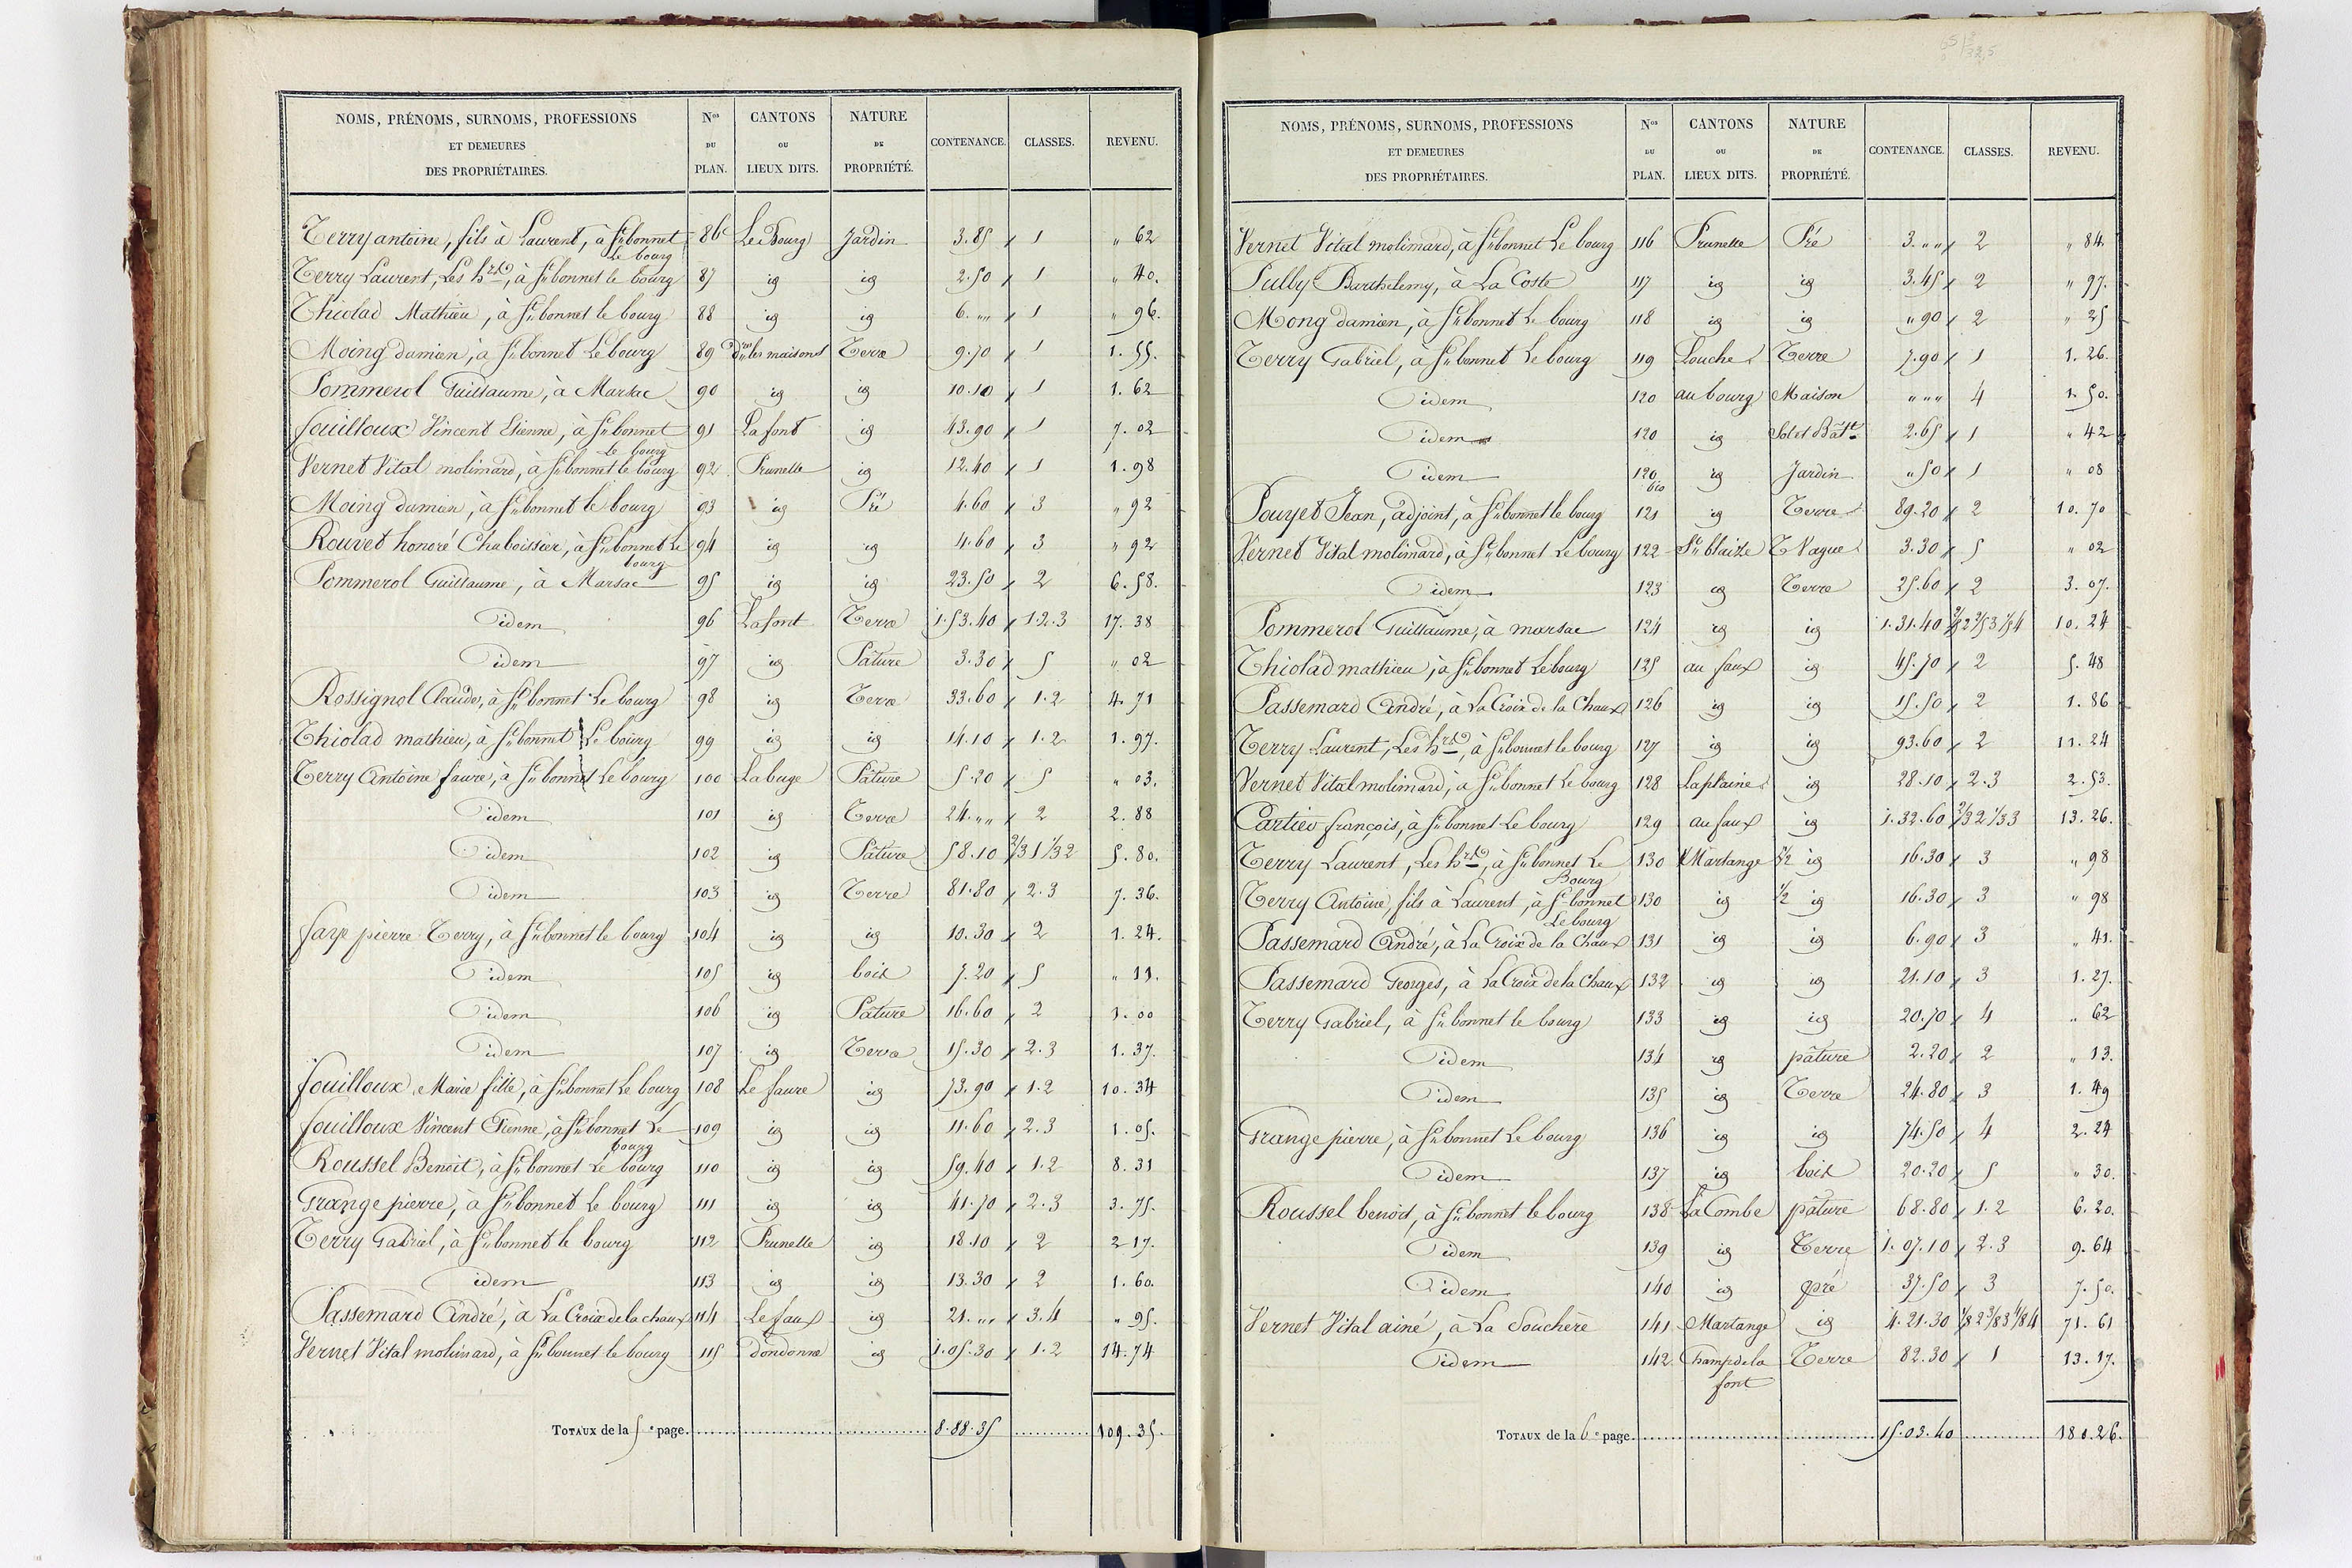 NOMS, PRÉNOMS, SURNOMS, PROFESSIONS ET DEMEURES DES PROPRIÉTAIRES. Nos DU PLAN. CANTONS OU LIEUX DITS. NATURE DE PROPRIÉTÉ. CONTENANCE. CLASSES. REVENU.
Terry antoine, fils à Laurent, à St bonnet Le bourg 86 Le Bourg Jardin 3.85 1 " 62
Terry Laurent, Les hrs, à St bonnet le bourg 87 id id 2.50 1 " 40.
Thiolad Mathieu, à St bonnet le bourg 88 id id 6. "" 1 " 96.
Moing damien, à St bonnet Le bourg 89 les maisons Terre 9.70 1 1.55.
Pommerol Guillaume, à Marsac 90 id id 10.10 1 1.62
fouilloux Vincent Etienne, à St bonnet Le bourg 91 La font id 43.90 1 7.02
Vernet Vital molimard, à St bonnet le bourg 92 Prunelle id 12.40 1 1.98
Moing damien, à St bonnet le bourg 93 id Pré 4.60 3 " 92
Rouvet honoré Chaboissier, à St bonnet Le bourg 94 id id 4.60 3 " 92
Pommerol Guillaume, à Marsac 95 id id 23.50 2 6.58.
idem 96 Lafont Terre 1.53.40 1.2.3 17.38
idem 97 id Pâture 3.30 5 " 02
Rossignol Claude, à St bonnet Le bourg 98 id Terre 33.60 1.2 4.71
Thiolad mathieu, à St bonnet Le bourg 99 id id 14.10 1.2 1.97.
Terry Antoine faure, à St bonnet Le bourg 100 Labuge Pâture 5.20 5 " 03.
idem 101 id Terre 24. "" 2 2.88
idem 102 id Pâture 58.10 2/3 1 1/3 2 5.80.
idem 103 id Terre 81.80 2.3 7.36.
faye pierre Terry, à St bonnet le bourg 104 id id 10.30 2 1.24.
idem 105 id bois 7.20 5 " 11.
idem 106 id Pâture 16.60 2 1.00
idem 107 id Terre 15.30 2.3 1.37.
fouilloux Marie fille, à St bonnet Le bourg 108 Le faure id 73.90 1.2 10.34
fouilloux Vincent Etienne, à St bonnet Le bourg 109 id id 11.60 2.3 1.05.
Roussel Benoit, à St bonnet Le bourg 110 id id 59.40 1.2 8.31
Grange pierre, à St bonnet Le bourg 111 id id 41.70 2.3 3.75.
Terry Gabriel, à St bonnet le bourg 112 Prunelle id 18.10 2 2 17.
idem 113 id id 13.30 2 1.60.
Passemard André, à La Croix de la chaux 114 Le faux id 21. "" 3.4 " 95.
Vernet Vital molimard, à St bonnet le bourg 115 dondonne id 1.05.30 1.2 14.74
TOTAUX de la 5e page. 8.88.35 109.35.
NOMS, PRÉNOMS, SURNOMS, PROFESSIONS ET DEMEURES DES PROPRIÉTAIRES. Nos DU PLAN. CANTONS OU LIEUX DITS. NATURE DE PROPRIÉTÉ. CONTENANCE. CLASSES. REVENU.
Vernet Vital molimard, à St bonnet Le bourg 116 Prunelle Pré 3. "" 2 " 84.
Pully Barthelemy, à La Coste 117 id id 3.45 2 " 97.
Mong damien, à St bonnet Le bourg 118 id id " 90 2 " 25
Terry Gabriel, à St bonnet Le bourg 119 Louche Terre 7.90 1 1.26.
idem 120 au bourg Maison """ 4 1.50.
idem 120 id Sol et Bât. 2.65 1 " 42
idem 120 bis id Jardin " 50 1 " 08
Pouyet Jean, adjoint, à St bonnet le bourg 121 id Terre 89.20 2 10.70
Vernet Vital molimard, à St bonnet Le bourg 122 St blaize T Vague 3.30 5 " 02
idem 123 id Terre 25.60 2 3.07.
Pommerol Guillaume, à marsac 124 id id 1.31.40 2/5 2 2/5 3 1/5 4 10.24
Thiolad mathieu, à St bonnet Le bourg 125 au faux id 45.70 2 5.48
Passemard André, à La Croix de la Chaux 126 id id 15.50 2 1.86
Terry Laurent, Les hrs, à St bonnet le bourg 127 id id 93.60 2 11.24
Vernet Vital molimard, à St bonnet Le bourg 128 Laplaine id 28.10 2.3 2.53.
Cartier françois, à St bonnet Le bourg 129 au faux id 1.32.60 2/3 2 1/3 3 13.26.
Terry Laurent, Les hrs, à St bonnet Le Bourg 130 Martange 1/2 id 16.30 3 " 98
Terry Antoine, fils à Laurent, à St bonnet Le bourg 130 id 1/2 id 16.30 3 " 98
Passemard André, à La Croix de la Chaux 131 id id 6.90 3 " 41.
Passemard Georges, à La Croix de la Chaux 132 id id 21.10 3 1.27.
Terry Gabriel, à St bonnet le bourg 133 id id 20.70 4 " 62
idem 134 id pâture 2.20 2 " 13.
idem 135 id Terre 24.80 3 1.49
Grange pierre, à St bonnet Le bourg 136 id id 74.50 4 2.24
idem 137 id bois 20.20 5 " 30.
Roussel benoit, à St bonnet le bourg 138 La Combe pâture 68.80 1.2 6.20.
idem 139 id Terre 1.07.10 2.3 9.64
idem 140 id pré 37.50 3 7.50.
Vernet Vital ainé, à La Souchère 141 Martange id 4.21.30 1/8 2 3/8 3 4/8 4 71.61
idem 142 Champ de la font Terre 82.30 1 13.17.
TOTAUX de la 6e page. 15.03.40 180.26.